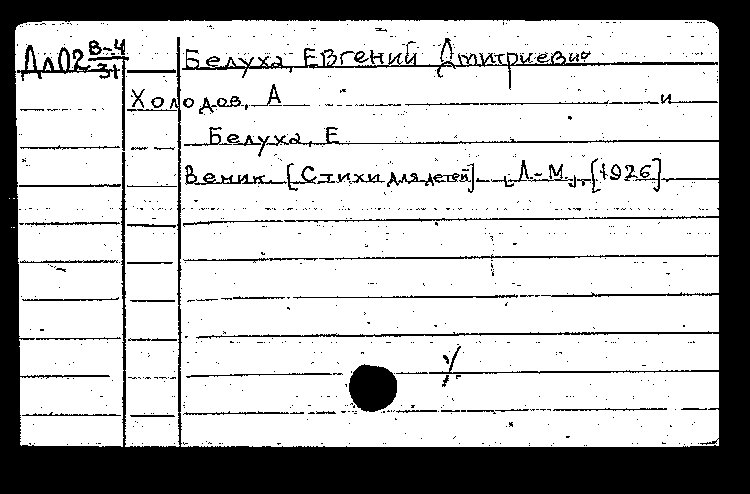 Дл02 В-4/31 Белуха, Евгений Дмитриевич
Холодов, А и
Белуха, Е
Веник. [Стихи для детей]. [Л-М.], [1926].